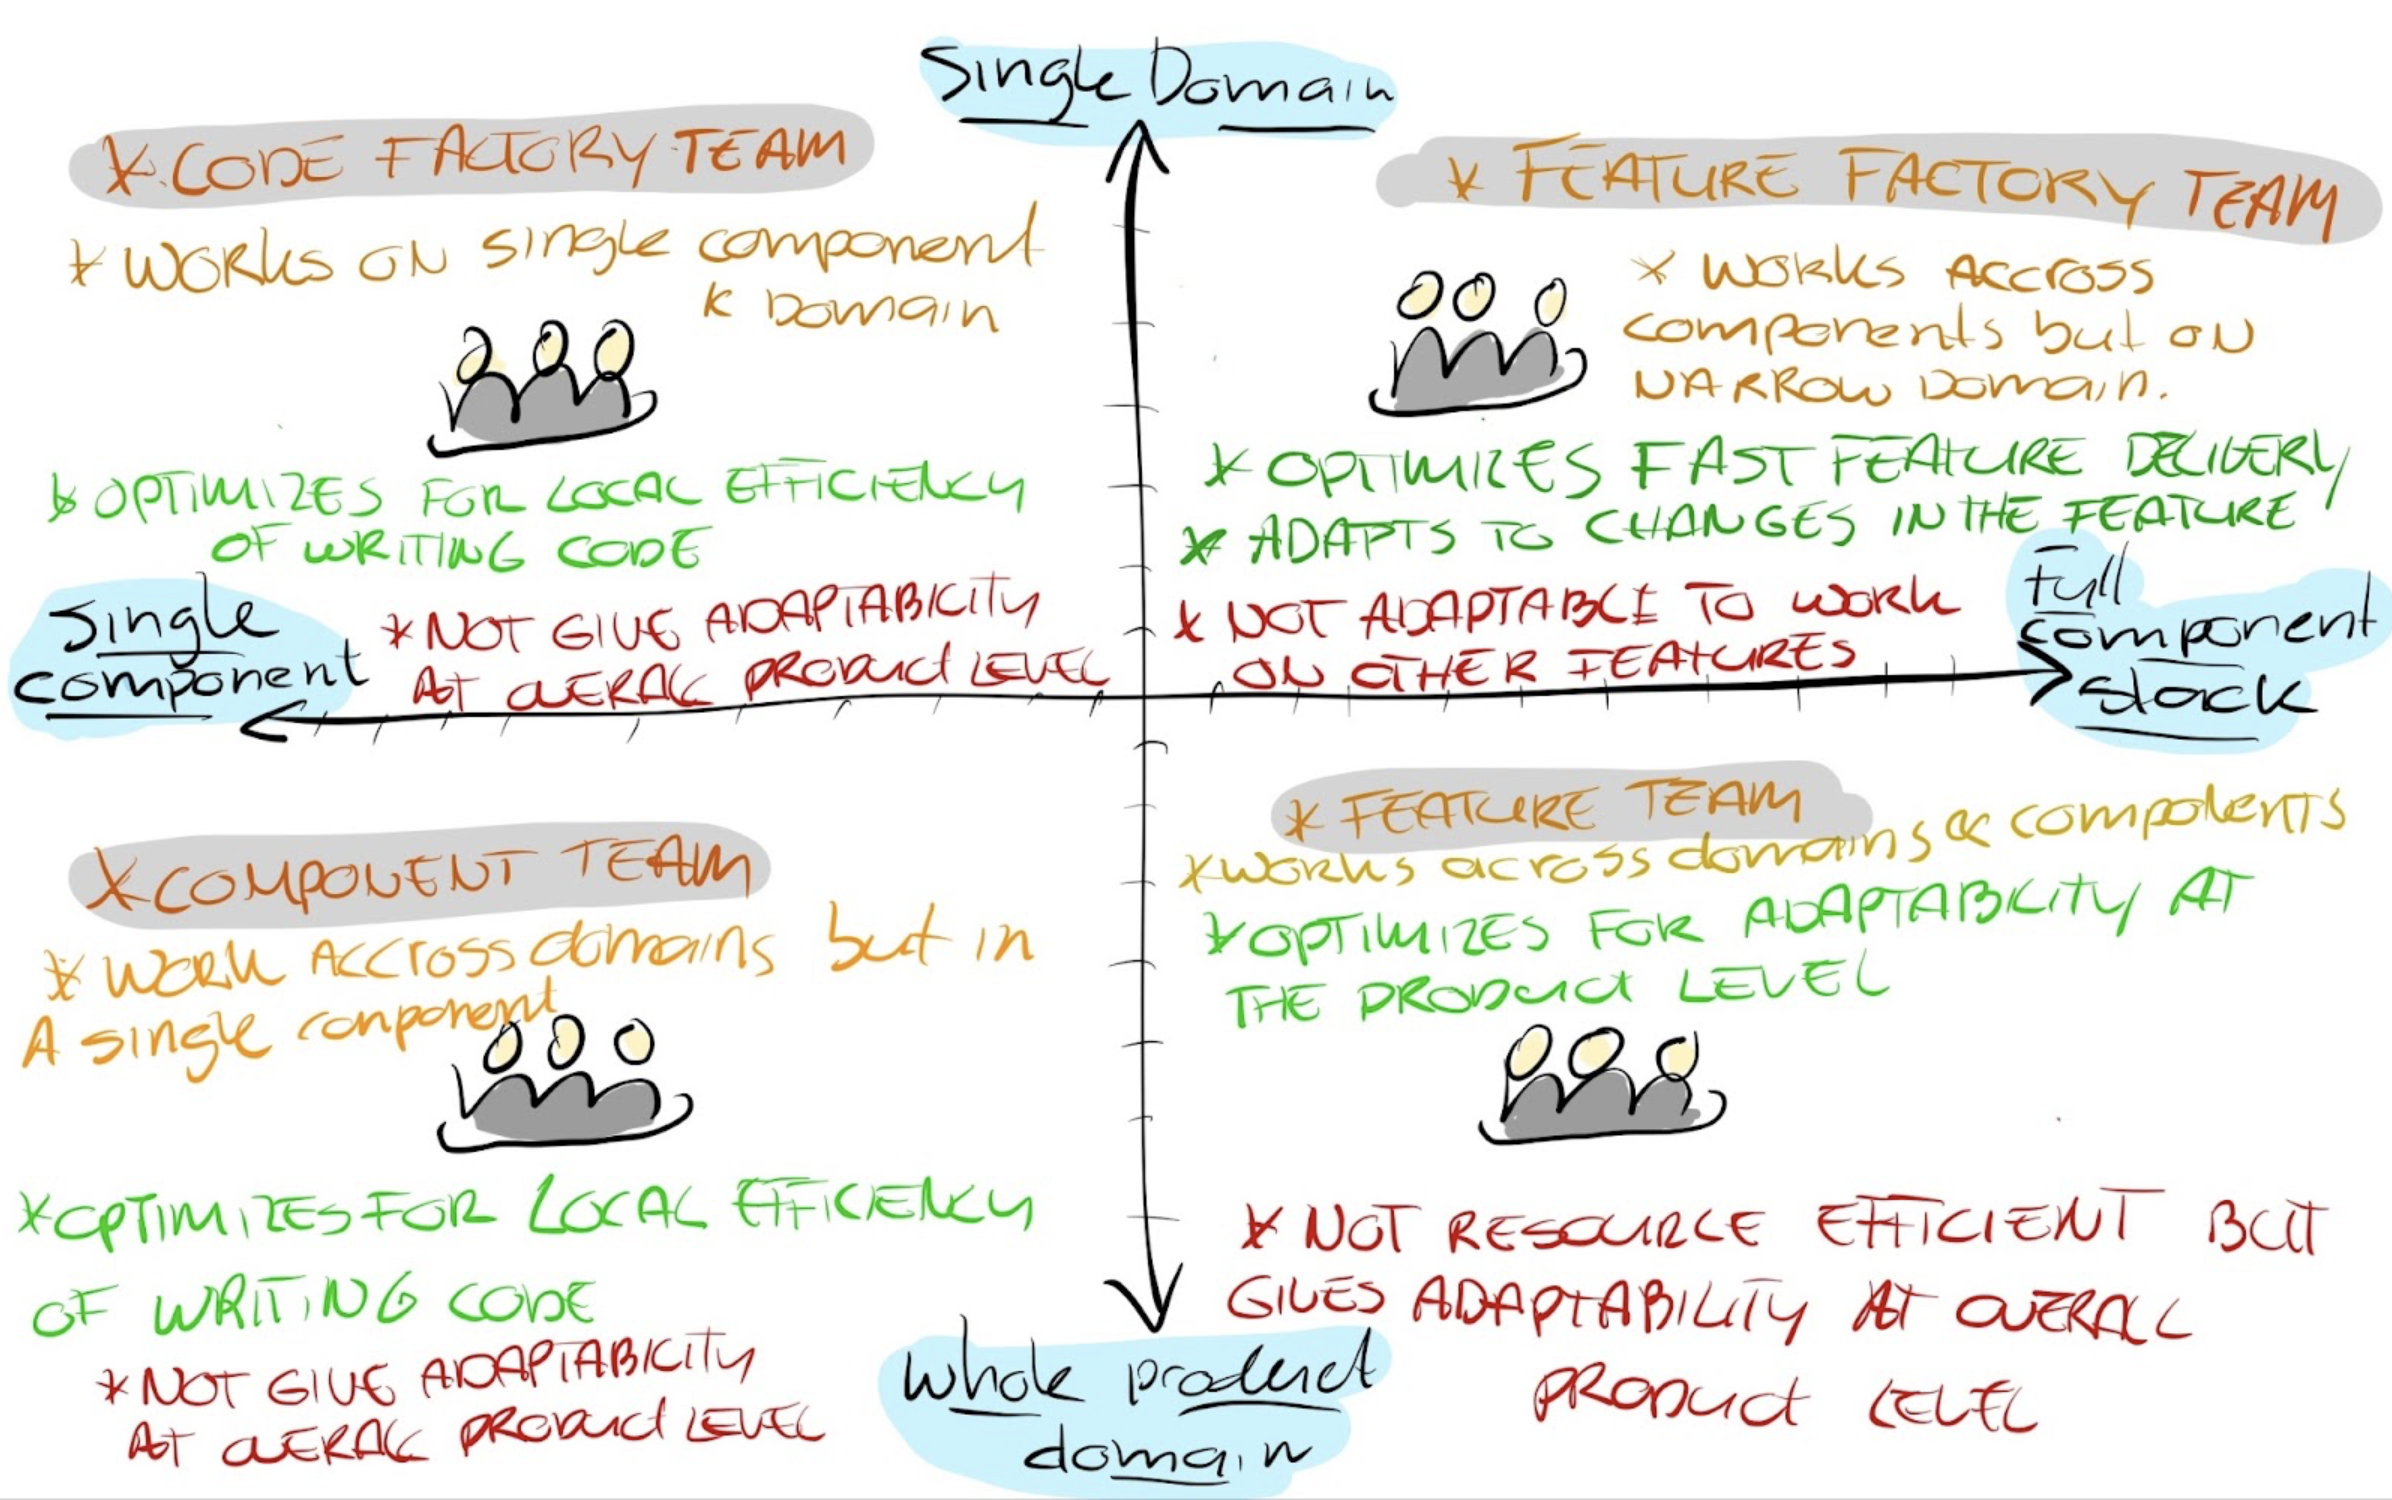 Single Domain
* CODE FACTORY TEAM
* WORKS ON single component
& Domain
* OPTIMIZES FOR LOCAL EFFICIENCY
OF WRITING CODE
* NOT GIVE ADAPTABILITY
AT OVERALL PRODUCT LEVEL
Single
component
* FEATURE FACTORY TEAM
* WORKS ACCROSS
components but ON
NARROW Domain.
* OPTIMIZES FAST FEATURE DELIVERY
* ADAPTS TO CHANGES IN THE FEATURE
* NOT ADAPTABLE TO WORK
ON OTHER FEATURES
Full
component
stack
* COMPONENT TEAM
* WORK ACCROSS domains but in
A single component
* OPTIMIZES FOR LOCAL EFFICIENCY
OF WRITING CODE
* NOT GIVE ADAPTABILITY
AT OVERALL PRODUCT LEVEL
* FEATURE TEAM
* WORKS across domains & components
* OPTIMIZES FOR ADAPTABILITY AT
THE PRODUCT LEVEL
* NOT RESOURCE EFFICIENT BUT
GIVES ADAPTABILITY AT OVERALL
PRODUCT LEVEL
Whole product
domain